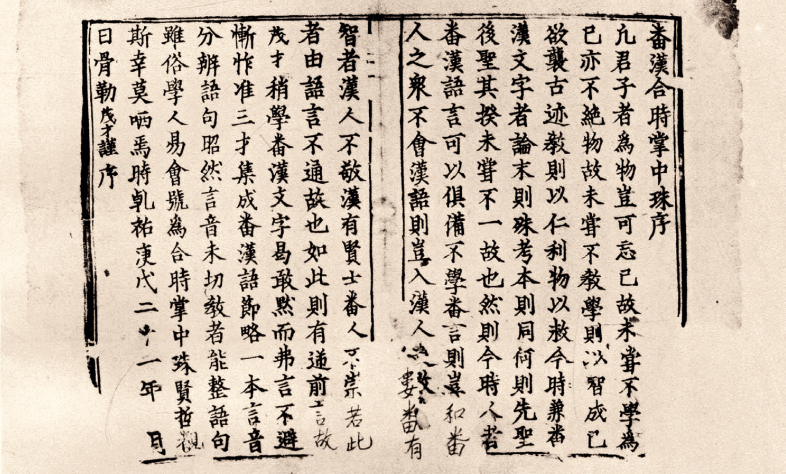 番漢合時掌中珠序
凡君子者爲物豈可忘己故未嘗不學爲
己亦不絶物故未嘗不教學則以智成己
欲襲古迹教則以仁利物以救今時兼番
漢文字者論末則殊考本則同何則先聖
後聖其揆未嘗不一故也然則今時人者
番漢語言可以俱備不學番言則豈和番
人之衆不會漢語則豈入漢人之數番有
二
智者漢人不敬漢有賢士番人不崇若此
者由語言不通故也如此則有逆前言故
茂才稍學番漢文字曷敢默而弗言不避
慚怍准三才集成番漢語節略一本言音
分辨語句昭然言音未切教者能整語句
雖俗學人易會號爲合時掌中珠賢哲覩
斯幸莫哂焉時乹祐庚戌二十一年 月
日骨勒茂才謹序